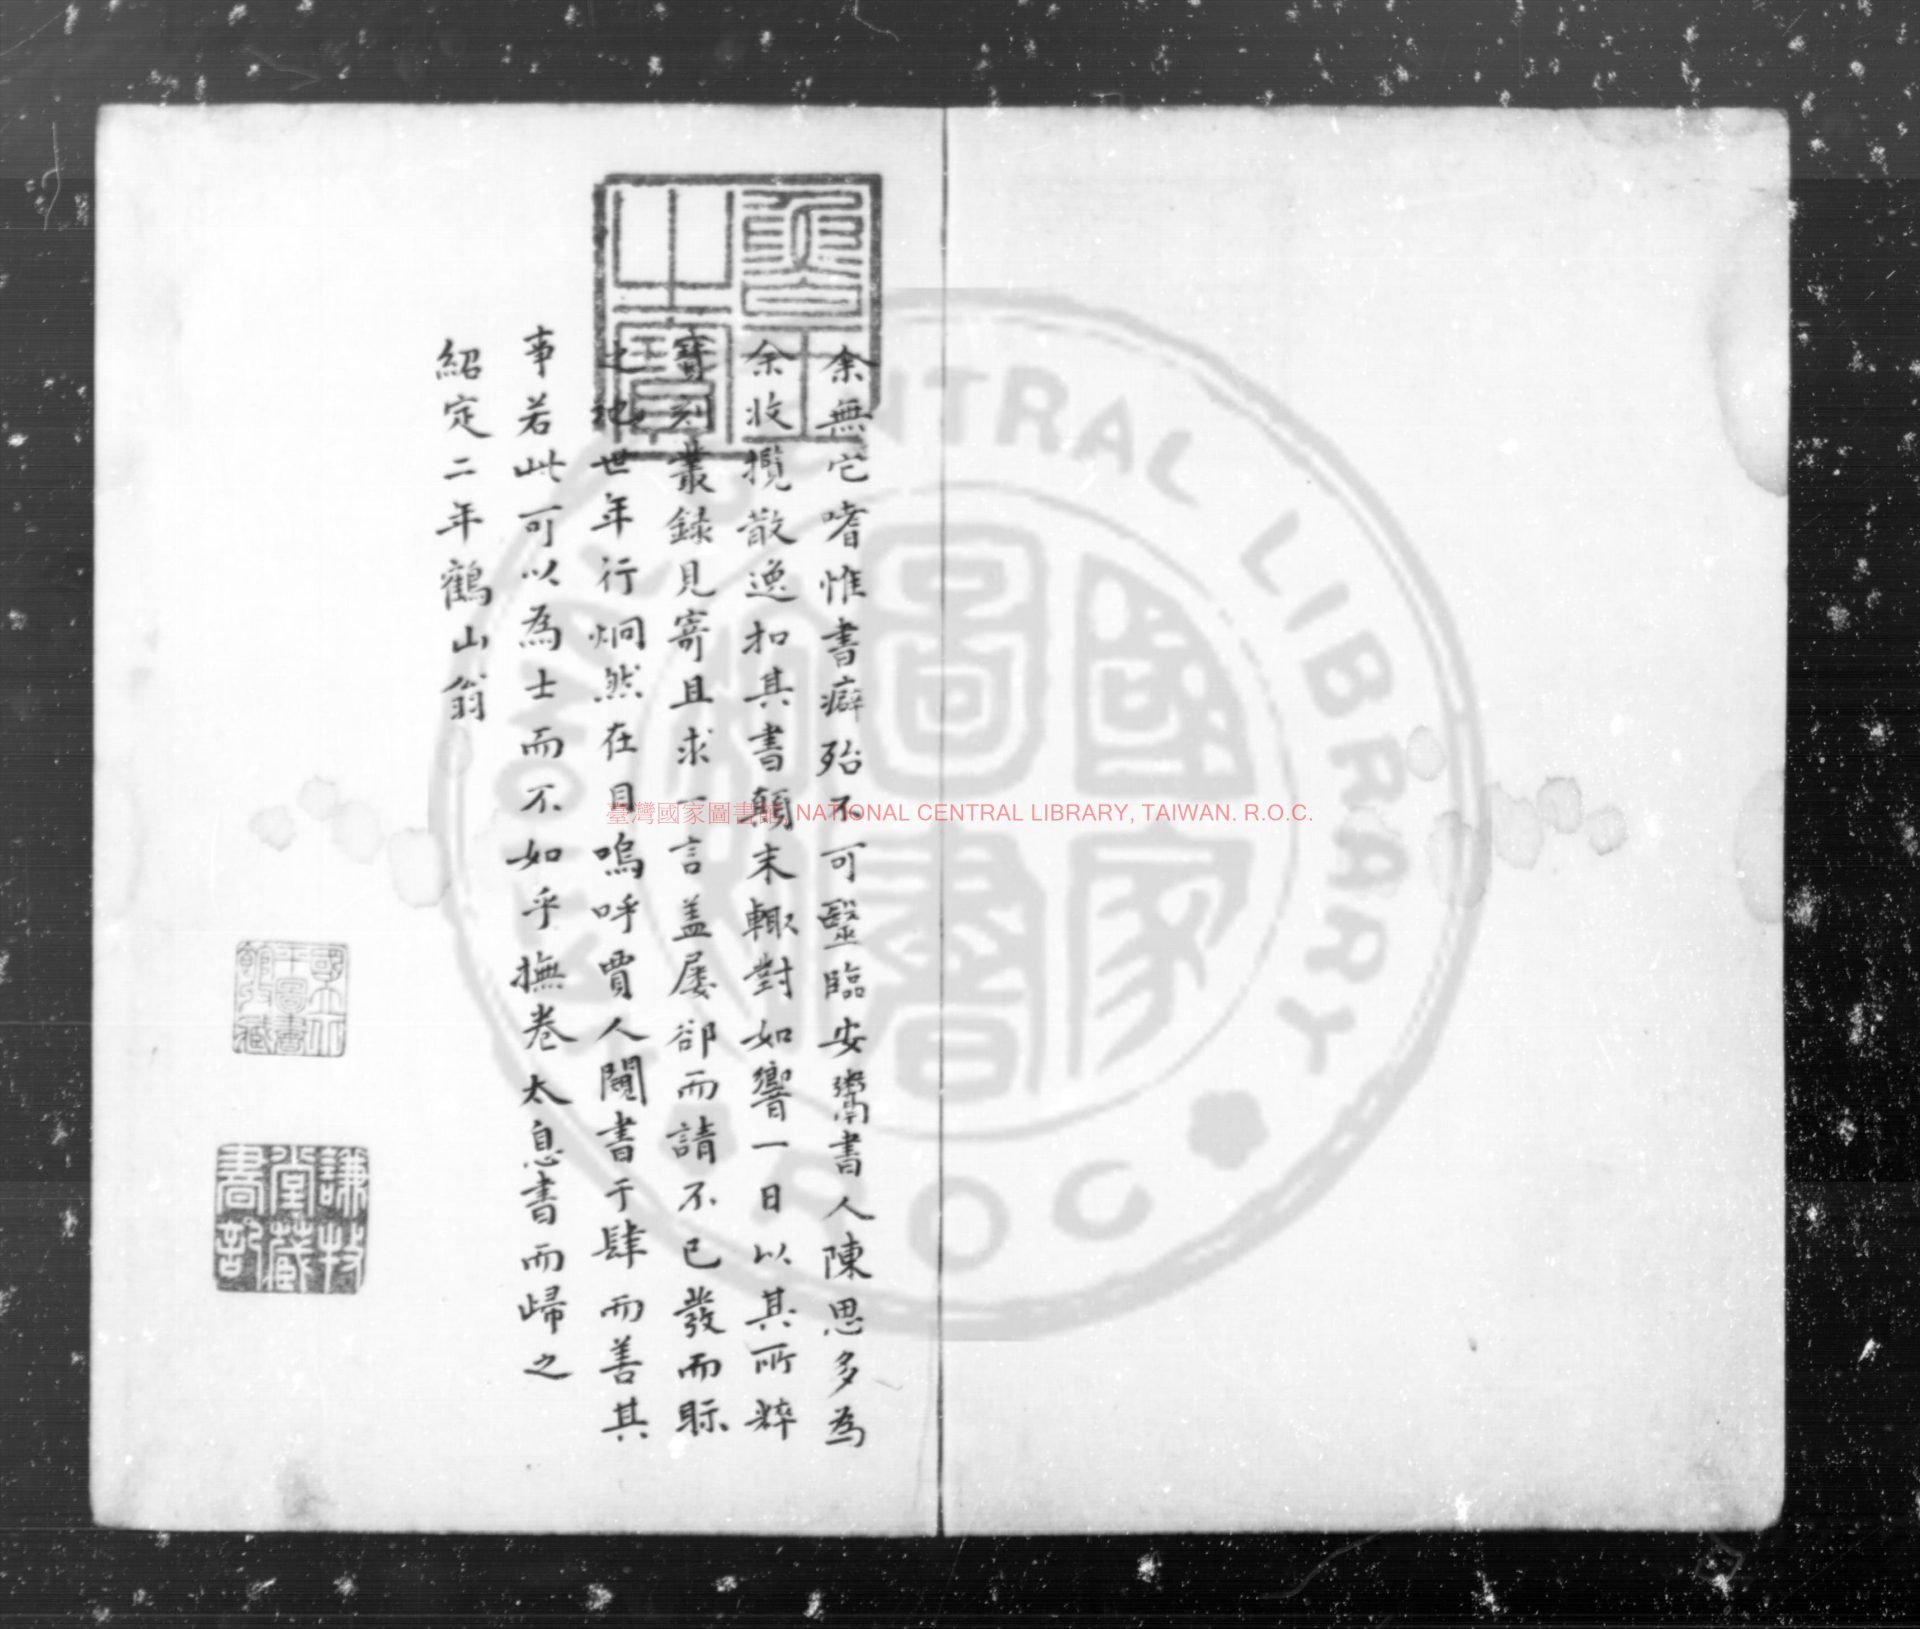 余無它嗜惟書癖殆不可毉臨安鬻書人陳思多為
余收攬散逸扣其書顛末輒對如響一日以其所粹
寶刻叢錄見寄且求一言盖屡郤而請不已發而眎
之地世年行炯然在目嗚呼賈人闚書于肆而善其
事若此可以為士而不如乎撫卷太息書而歸之
紹定二年鶴山翁
國立中央圖書館收藏
謙牧堂藏書記
臺灣國家圖書館 NATIONAL CENTRAL LIBRARY, TAIWAN. R.O.C.
NATIONAL CENTRAL LIBRARY
R.O.C
國家圖書